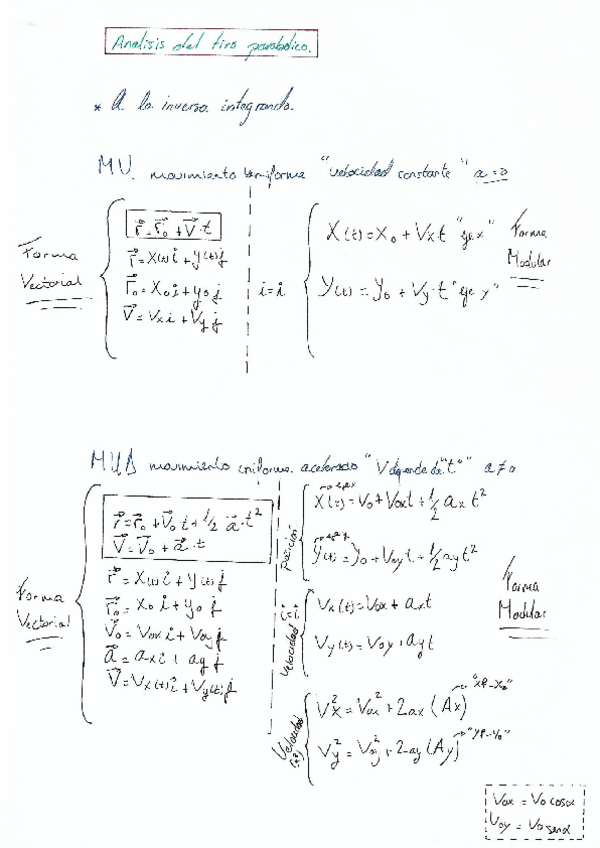 Analisis del tiro parabolico.
* A la inversa integrando.
MU. movimiento uniforme "velocidad constante" a=0
Forma Vectorial
r⃗ = r⃗₀ + v⃗·t
r⃗ = X(t)i + y(t)j
r⃗₀ = X₀i + y₀j
V⃗ = Vxi + Vyj
i=i
X(t) = X₀ + Vxt "eje x"
Y(t) = Y₀ + Vy·t "eje y"
Forma Modular
MUA movimiento uniforme acelerado "V depende de "t"" a≠0
Forma Vectorial
r⃗ = r⃗₀ + V⃗₀·t + 1/2 a⃗·t²
V⃗ = V⃗₀ + a⃗·t
r⃗ = X(t)i + Y(t)j
r⃗₀ = X₀i + y₀j
V⃗₀ = V₀xi + V₀yj
a⃗ = axi + ayj
V⃗ = Vx(t)i + Vy(t)j
Posición
X(t) = V₀ + V₀xt + 1/2 ax t²
Y(t) = Y₀ + V₀yt + 1/2 ayt²
Velocidad
Vx(t) = V₀x + axt
Vy(t) = V₀y + ayt
Velocidad
Vx² = V₀x² + 2ax (Ax) "xf-x₀"
Vy² = V₀y² + 2·ay (Ay) "yf-y₀"
Forma Modular
V₀x = V₀ cosα
V₀y = V₀ senα